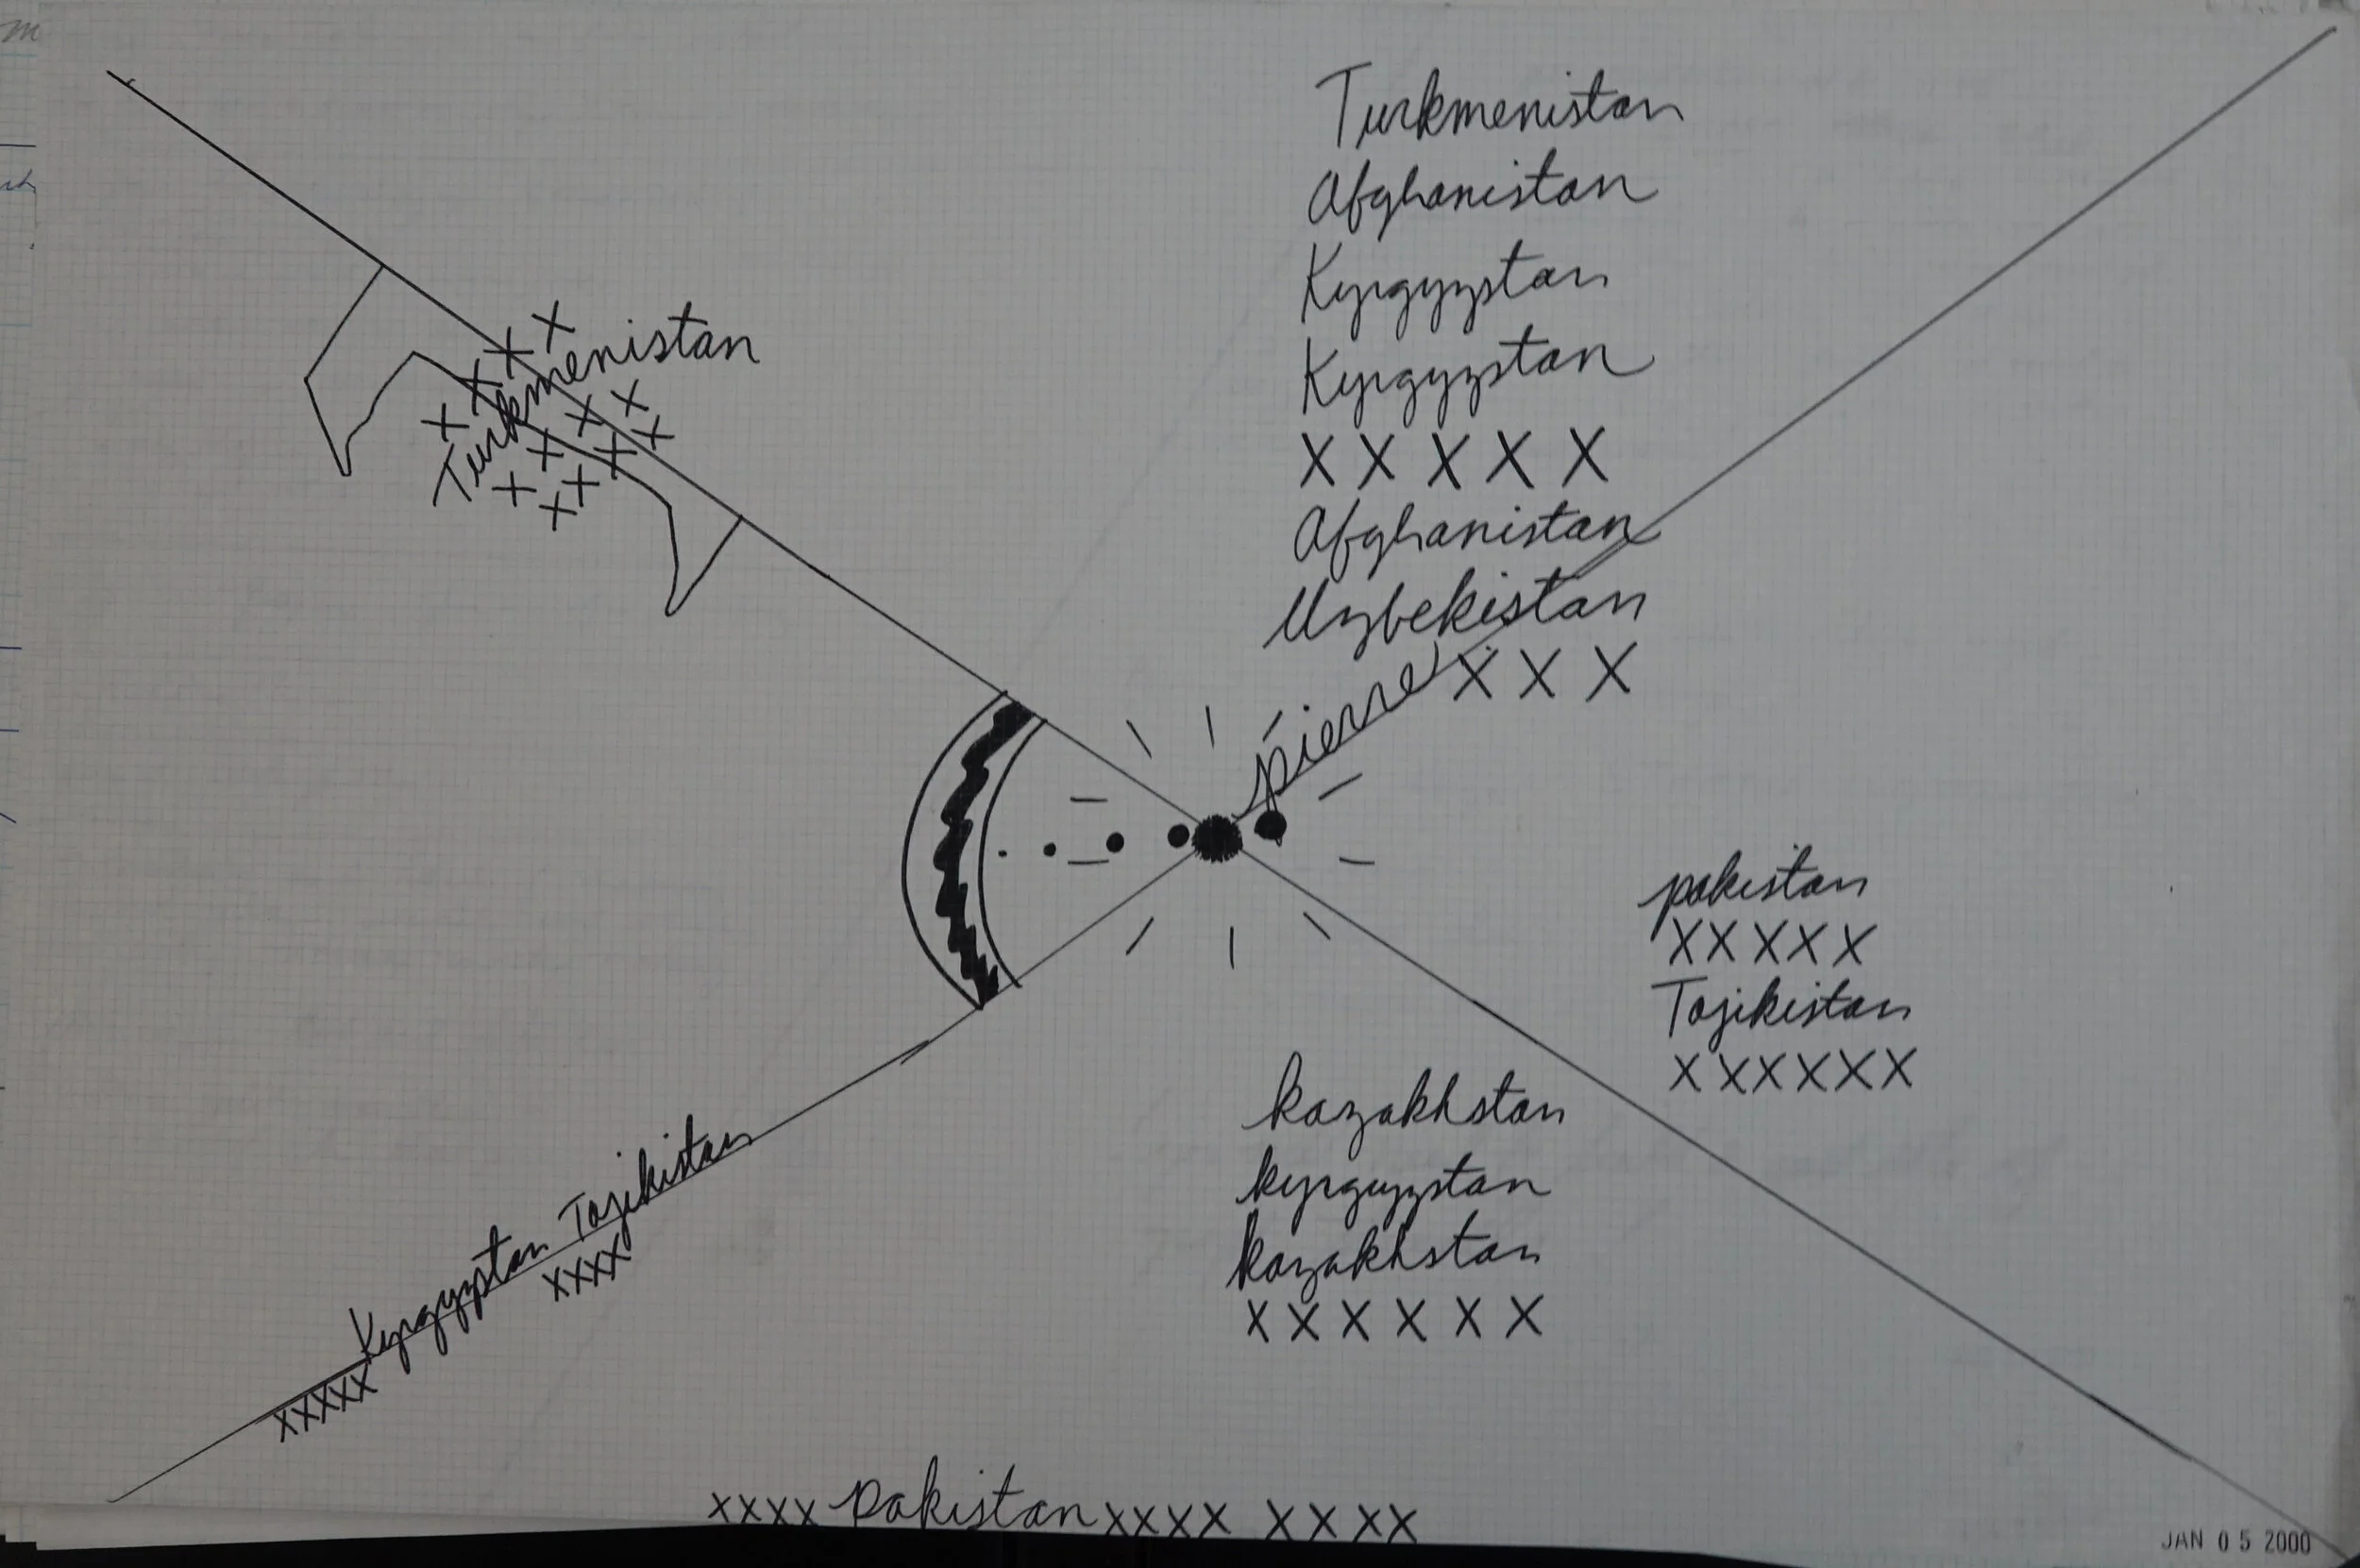 Turkmenistan
Afghanistan
Kyrgyzstan
Kyrgyzstan
X X X X X
Afghanistan
Uzbekistan
X X X
pierre
X X
X X
X X
X X X
X X X
X X
Turkmenistan
pakistan
X X X X X
Tajikistan
X X X X X X
kazakhstan
kyrguyzstan
kazakhstan
X X X X X X
Kyrgyzstan Tajikistan
XXXX
XXXXX
XXXX pakistan XXXX XXXX
JAN 05 2000